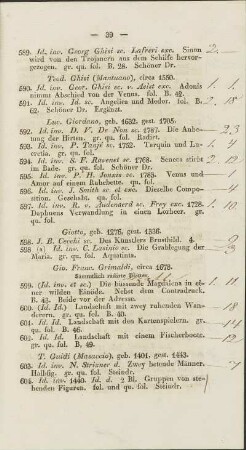 — 39 —
589. Id. inv. Georg Ghisi sc. Lafreri exc. Sinon
wird von den Trojanern aus dem Schiffe hervor-
gezogen. gr. qu. fol. B. 28. Schöner Dr.
Teod. Ghisi (Mantuano), circa 1580.
590. Id. inv. Geor. Ghisi sc. v. Aelst exc. Adonis
nimmt Abschied von der Venus. fol. B. 42.
591. Id. inv. Id. sc. Angelica und Medor. fol. B.
62. Schöner Dr.
Luc. Giordano, geb. 1632. gest. 1705.
592. Id. inv. D. V. De Non sc. 1787. Die Anbe-
tung der Hirten. gr. fol. Radirt.
593. Id. inv. P. sc. 1757. Tarquin und Lu-
cretia. gr. qu. fol.
594. Id. inv. S. F. Ravenet sc. 1768. Seneca stirbt
im Bade. gr. qu. fol. Schöner Dr.
595. Id. inv. P. H. sc. 1763. Venus und
Amor auf einem Ruhebette. qu. fol.
596. Id. inv. J. Smith sc. et exc. Dieselbe Compo-
sition. Geschabt. qu. fol.
597. Id. inv. R. v. Audenaerd sc. Frey exc. 1728.
Daphnens Verwandlung in einen Lorbeer. gr.
qu. fol.
Giotto, geb. 1276. gest. 1336.
598. J. B. Cecchi sc. Des Künstlers Brustbild. 4.
599. (a) Id. inv. C. Lasinio sc. Die Grablegung der
Maria. gr. qu. fol. Aquatinta.
Gio. Franc. Grimaldi, circa 1678.
Sammtlich radirte Blätter.
599. (b) Id. inv. et sc. Die büssende Magdalena in ei-
ner wilden Einöde. Nebst dem Contradruck.
B. 43. Beide vor der Adresse.
600. (Id. Id.) Landschaft mit zwey ruhenden Wan-
derern. gr. qu. fol. B. 40.
601. Id. Id. Landschaft mit den Kartenspielern. gr.
qu. fol. B. 46.
602. Id. Id. Landschaft mit einem Fischerboote.
gr. qu. fol. B. 49.
T. Guidi (Masaccio), geb. 1401. gest. 1443.
603. Id. inv. N. Strixner d. Zwey betende Männer.
Halbfig. gr. qu. fol. Steindr.
604. Id. inv. Id. d. 2 Bl. Gruppen von ste-
henden Figuren. fol. und qu. fol. Steindr.